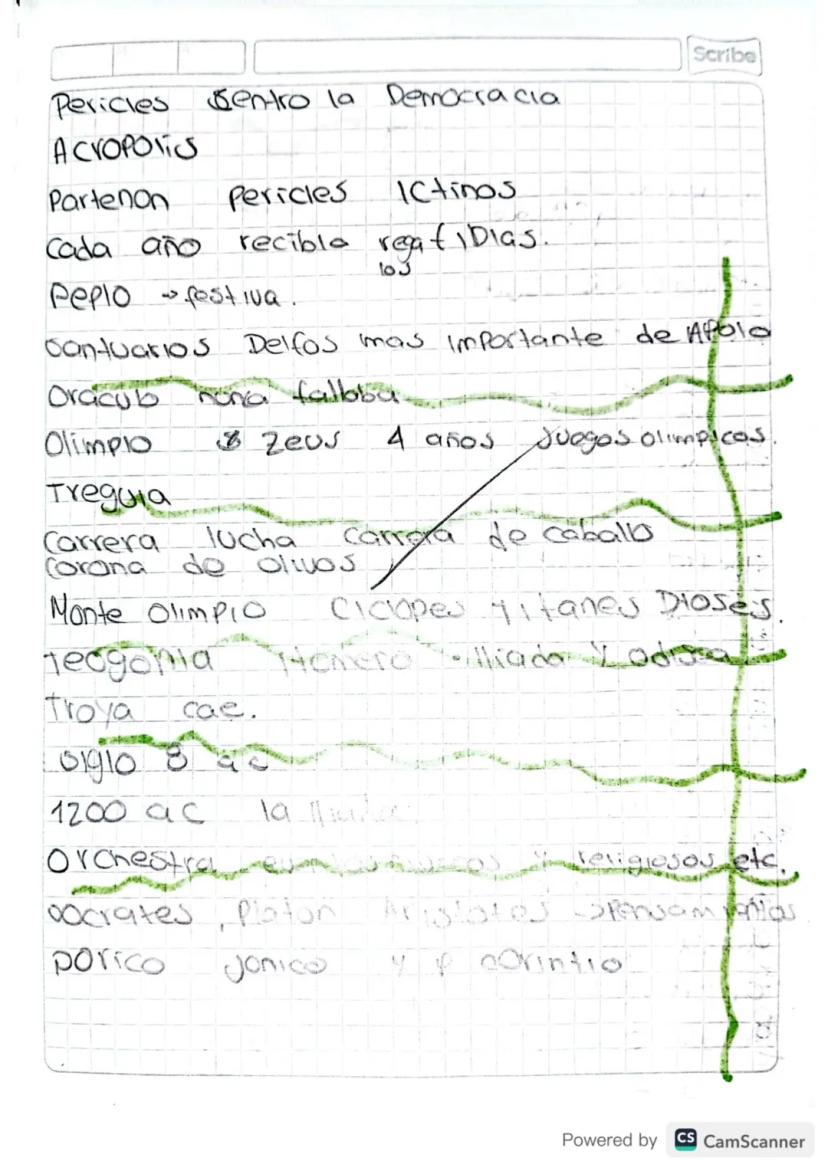 Scribe
Pericles sentro la Democracia
Acropolis
Partenon Pericles Ictinos
Cada año recibia rega fiDias.
los
Peplo → festiva.
Santuarios Delfos mas importante de Apolo
Oraculo nunca fallaba
Olimpio Zeus 4 años Juegos olimpicos.
Tregua
Carrera lucha carrera de caballo
corona de olivos
Monte Olimpio Ciclopes titanes Dioses.
Teogonia Homero - Iliada y odisea
Troya cae.
Siglo 8 a c
1200 a c la Iliada
Orchestra y religiosos etc.
Socrates, Platon Aristotes →Pensamientos
Dorico Jonico y corintio
Powered by CS CamScanner